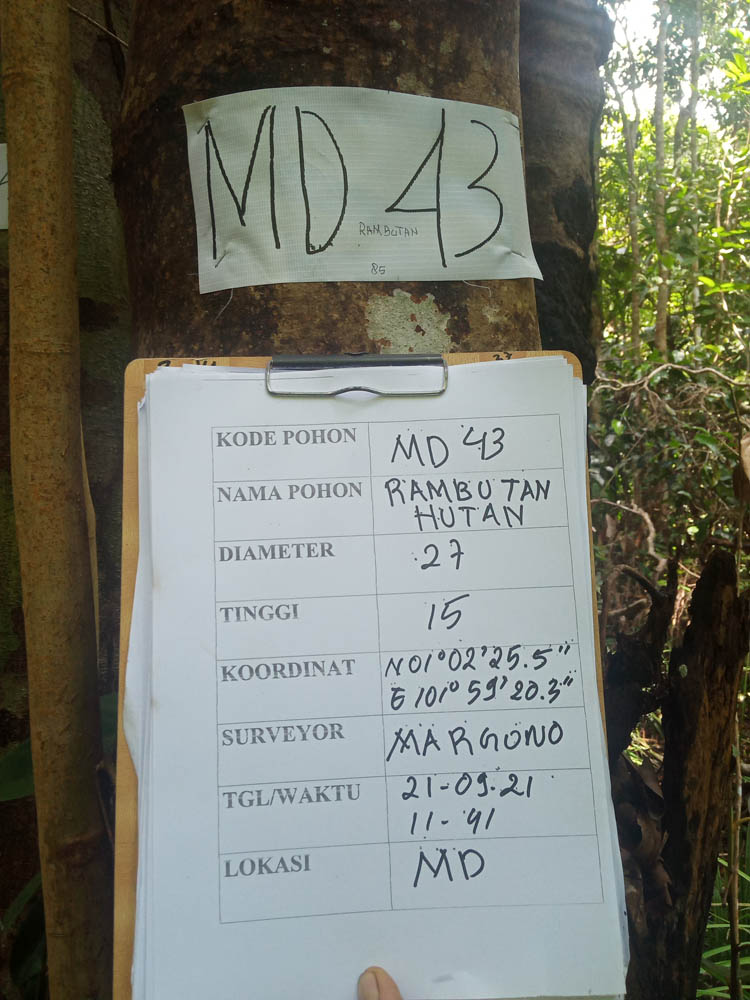 MD 43
RAMBUTAN
85
KODE POHON MD 43
NAMA POHON RAMBUTAN HUTAN
DIAMETER 27
TINGGI 15
KOORDINAT N 01° 02' 25.5"
E 101° 59' 20.3"
SURVEYOR MARGONO
TGL/WAKTU 21-09-21
11-41
LOKASI MD